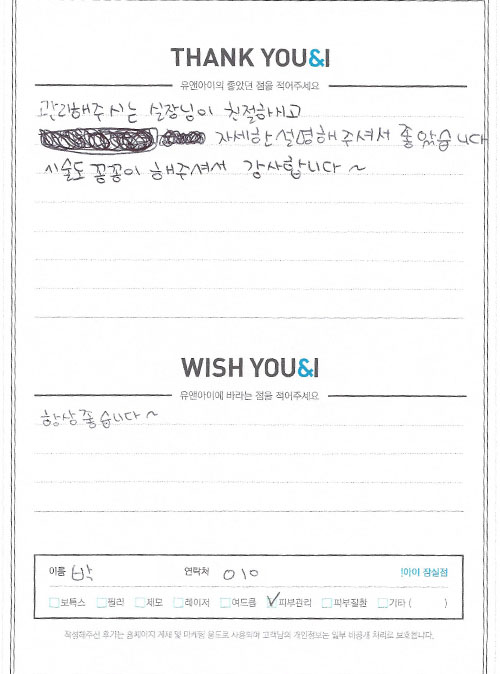 THANK YOU&I
유앤아이의 좋았던 점을 적어주세요
관리해주시는 실장님이 친절하시고
자세한설명해주셔서 좋았습니다
시술도 꼼꼼이 해주셔서 감사합니다~
WISH YOU&I
유앤아이에 바라는 점을 적어주세요
항상좋습니다~
이름 박 연락처 010 !아이 잠실점
보톡스 필러 제모 레이저 여드름 ✓피부관리 피부질환 기타 ( )
작성해주신 후기는 홈페이지 게재 및 마케팅 용도로 사용되며 고객님의 개인정보는 일부 비공개 처리로 보호됩니다.